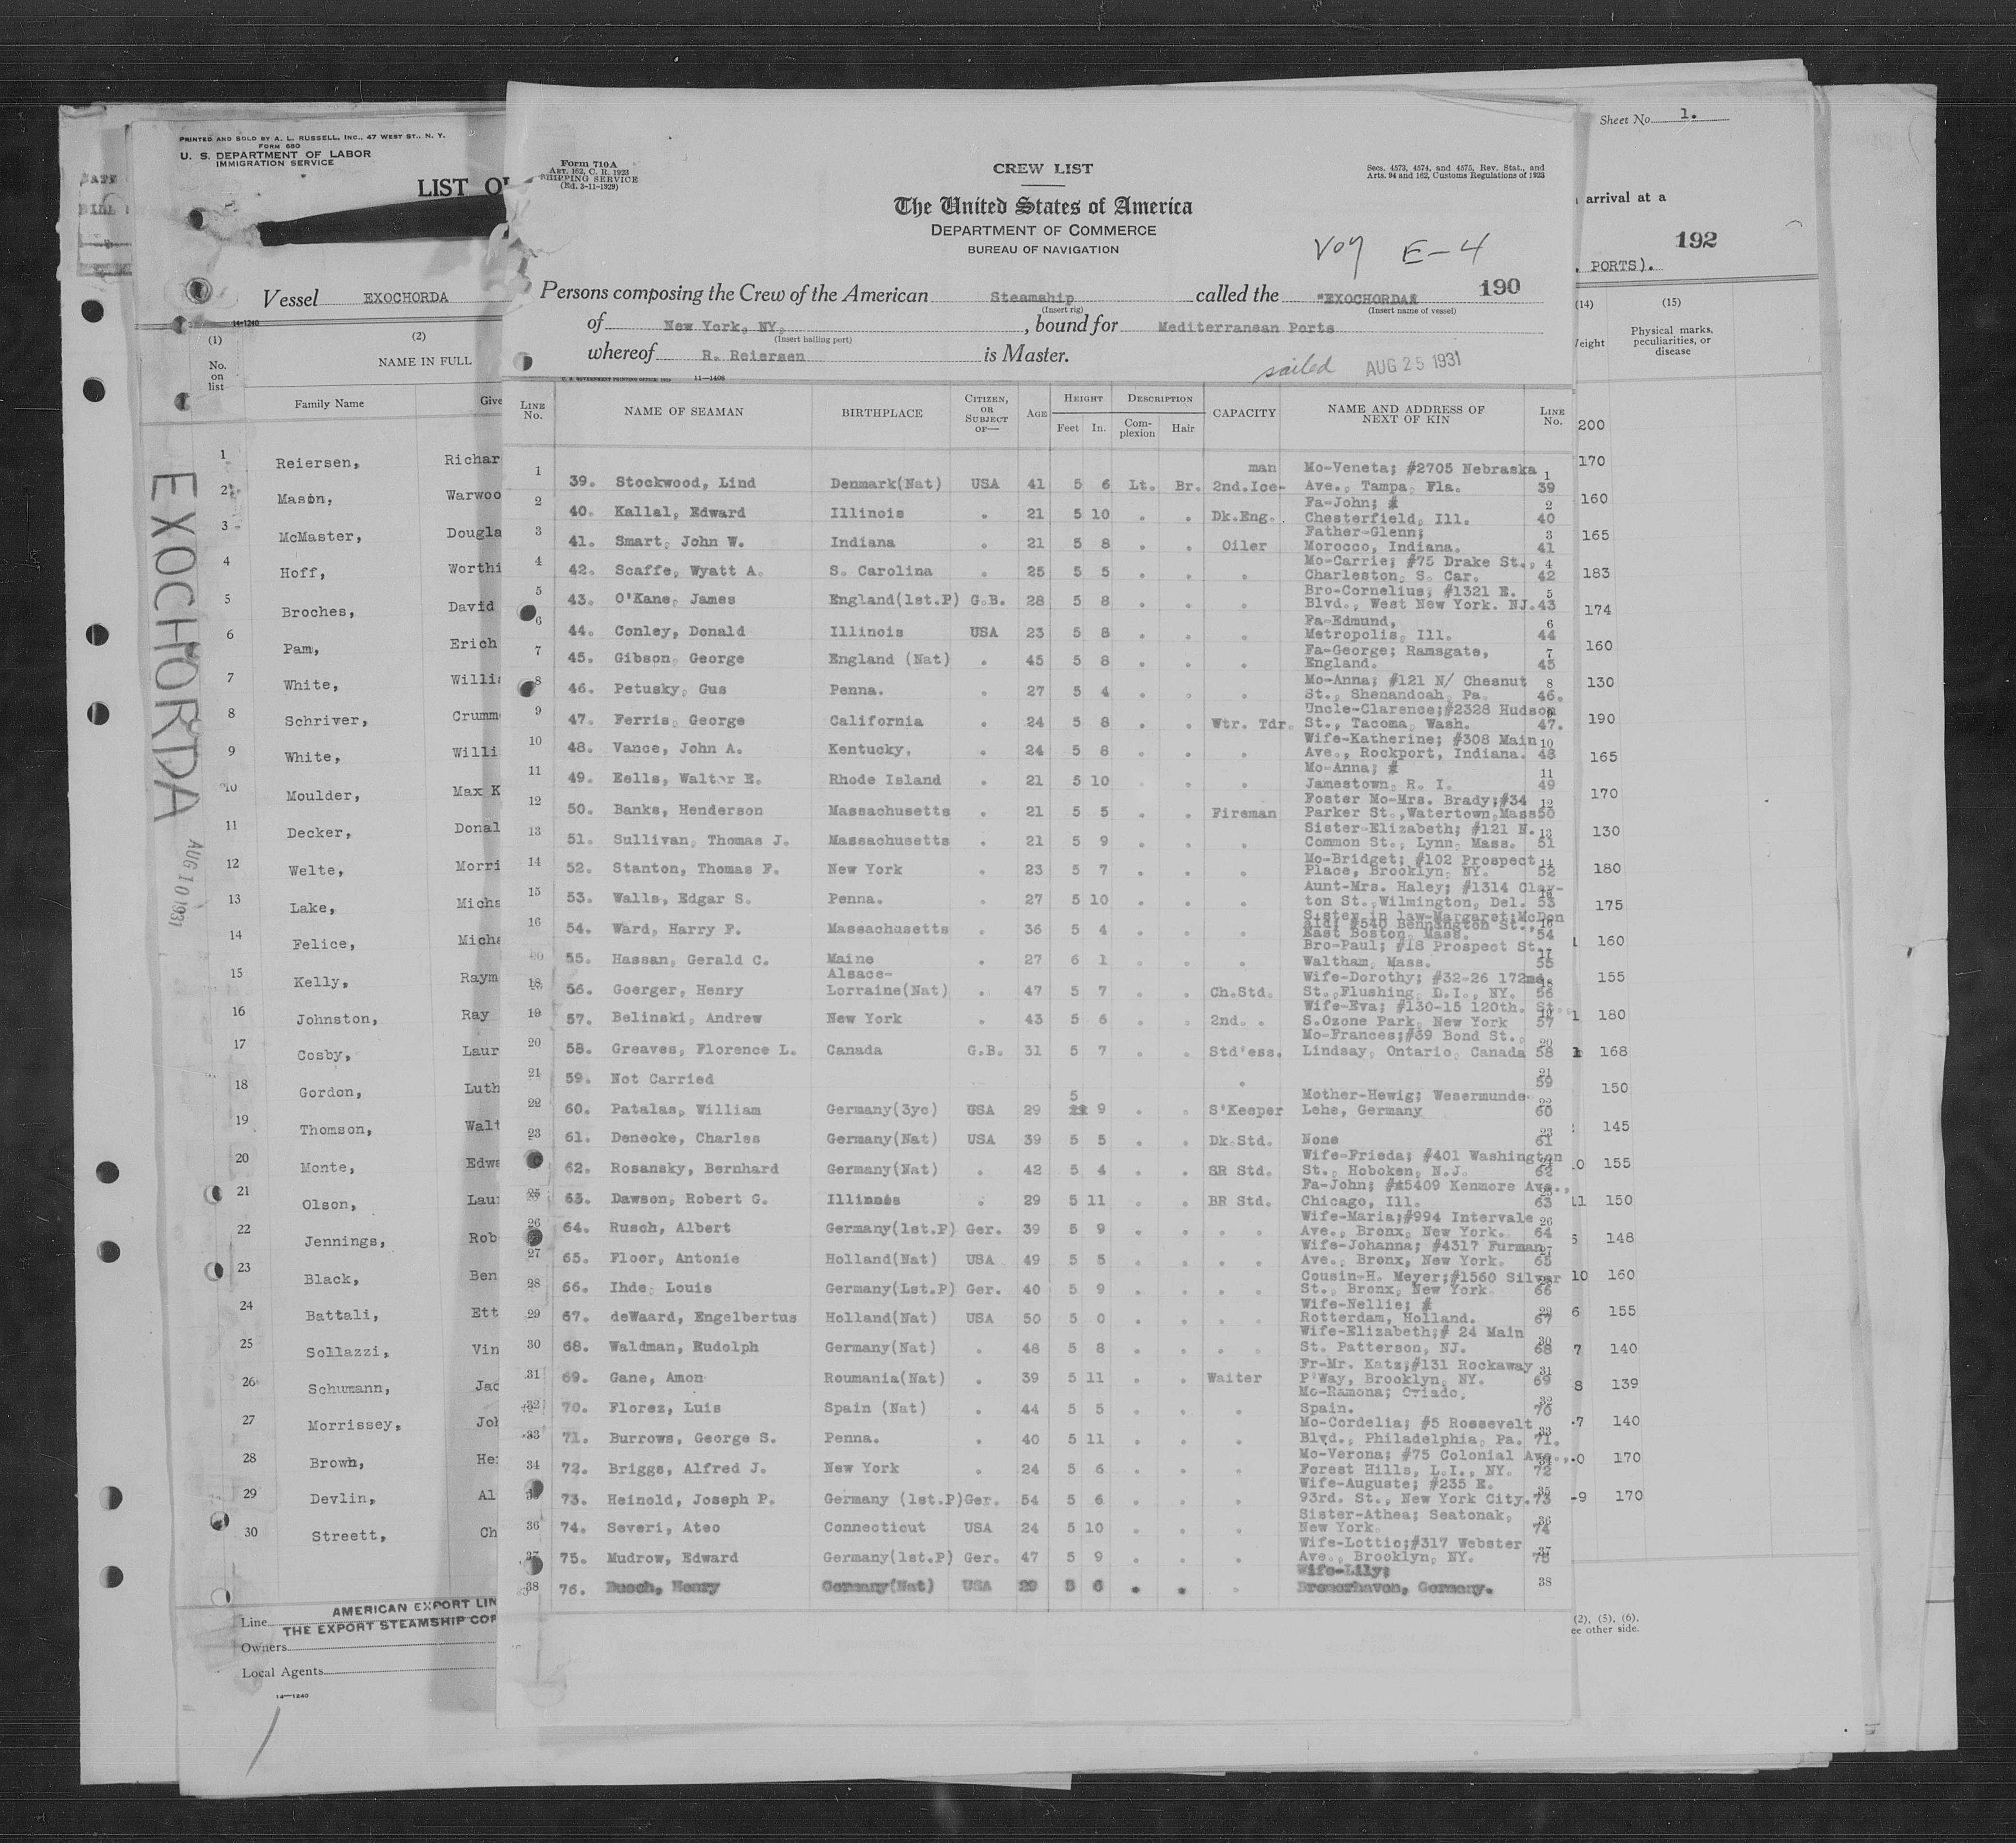 PRINTED AND SOLD BY A. L. RUSSELL, INC., 47 WEST ST., N. Y.
FORM 680
U. S. DEPARTMENT OF LABOR
IMMIGRATION SERVICE
LIST O
Vessel EXOCHORDA
14-1240
(1) (2)
No. on list NAME IN FULL
Family Name Give
1 Reiersen, Richar
2 Mason, Warwoo
3 McMaster, Dougla
4 Hoff, Worthi
5 Broches, David
6 Pam, Erich
7 White, Willi
8 Schriver, Crumm
9 White, Willi
10 Moulder, Max K
11 Decker, Donal
12 Welte, Morri
13 Lake, Micha
14 Felice, Micha
15 Kelly, Raym
16 Johnston, Ray
17 Cosby, Laur
18 Gordon, Luth
19 Thomson, Walt
20 Monte, Edwa
21 Olson, Lau
22 Jennings, Rob
23 Black, Ben
24 Battali, Ett
25 Sollazzi, Vin
26 Schumann, Jac
27 Morrissey, Joh
28 Brown, He
29 Devlin, Al
30 Streett, Ch
Line AMERICAN EXPORT LIN
THE EXPORT STEAMSHIP COR
Owners
Local Agents
14-1240
EXOCHORDA
AUG 10 1931
Form 710A
ART. 162, C. R. 1923
SHIPPING SERVICE
(Ed. 3-11-1929)
CREW LIST
Secs. 4573, 4574, and 4575, Rev. Stat., and
Arts. 94 and 162, Customs Regulations of 1923
The United States of America
DEPARTMENT OF COMMERCE
BUREAU OF NAVIGATION
Voy E-4
190
Persons composing the Crew of the American Steamship called the "EXOCHORDA"
(Insert rig) (Insert name of vessel)
of New York, NY, , bound for Mediterranean Ports
(Insert hailing port)
whereof R. Reiersen is Master.
sailed AUG 25 1931
U. S. GOVERNMENT PRINTING OFFICE: 1929 11-1408
LINE No. NAME OF SEAMAN BIRTHPLACE CITIZEN, OR SUBJECT OF— AGE HEIGHT Feet In. DESCRIPTION Complexion Hair CAPACITY NAME AND ADDRESS OF NEXT OF KIN LINE No.
man Mo-Veneta; #2705 Nebraska
1 39. Stockwood, Lind Denmark(Nat) USA 41 5 6 Lt. Br. 2nd.Ice- Ave., Tampa, Fla. 39
Fa-John; #
2 40. Kallal, Edward Illinois . 21 5 10 . . Dk.Eng. Chesterfield, Ill. 40
Father-Glenn;
3 41. Smart, John W. Indiana . 21 5 8 . . Oiler Morocco, Indiana. 41
Mo-Carrie; #75 Drake St.,
4 42. Scaffe, Wyatt A. S. Carolina . 25 5 5 . . . Charleston, S. Car. 42
Bro-Cornelius; #1321 E.
5 43. O'Kane, James England(1st.P) G.B. 28 5 8 . . . Blvd., West New York. NJ.43
Fa-Edmund,
6 44. Conley, Donald Illinois USA 23 5 8 . . . Metropolis, Ill. 44
Fa-George; Ramsgate,
7 45. Gibson, George England (Nat) . 45 5 8 . . . England. 45
Mo-Anna; #121 N/ Chesnut
8 46. Petusky, Gus Penna. . 27 5 4 . . . St., Shenandoah, Pa. 46.
Uncle-Clarence;#2328 Hudson
9 47. Ferris, George California . 24 5 8 . . Wtr. Tdr. St., Tacoma, Wash. 47.
Wife-Katherine; #308 Main
10 48. Vance, John A. Kentucky. . 24 5 8 . . . Ave., Rockport, Indiana. 48
Mo-Anna; #
11 49. Eells, Walter E. Rhode Island . 21 5 10 . . . Jamestown, R. I. 49
Foster Mo-Mrs. Brady;#34
12 50. Banks, Henderson Massachusetts . 21 5 5 . . Fireman Parker St.,Watertown,Mass50
Sister-Elizabeth; #121 N.
13 51. Sullivan, Thomas J. Massachusetts . 21 5 9 . . . Common St., Lynn, Mass. 51
Mo-Bridget; #102 Prospect
14 52. Stanton, Thomas F. New York . 23 5 7 . . . Place, Brooklyn, NY. 52
Aunt-Mrs. Haley; #1314 Clay-
15 53. Walls, Edgar S. Penna. . 27 5 10 . . . ton St.,Wilmington, Del. 53
Sister in law-Margaret;McDon
ald; #540 Bennington St.,
16 54. Ward, Harry F. Massachusetts . 36 5 4 . . . East Boston, Mass. 54
Bro-Paul; #18 Prospect St.
55. Hassan, Gerald C. Maine . 27 6 1 . . . Waltham, Mass. 55
Alsace- Wife-Dorothy; #32-26 172nd.
18 56. Goerger, Henry Lorraine(Nat) . 47 5 7 . . Ch.Std. St.,Flushing, L.I., NY. 56
Wife-Eva; #130-15 120th. St.
19 57. Belinski, Andrew New York . 43 5 6 . . 2nd. . S.Ozone Park, New York 57
Mo-Frances;#39 Bond St.,
20 58. Greaves, Florence L. Canada G.B. 31 5 7 . . Std'ess. Lindsay, Ontario, Canada 58
21 59. Not Carried . 59
5 Mother-Hewig; Wesermunde-
22 60. Patalas, William Germany(3yc) USA 29 9 . . S'Keeper Lehe, Germany 60
23 61. Denecke, Charles Germany(Nat) USA 39 5 5 . . Dk.Std. None 61
Wife-Frieda; #401 Washington
62. Rosansky, Bernhard Germany(Nat) . 42 5 4 . . SR Std. St., Hoboken, N.J. 62
Fa-John; #5409 Kenmore Ave.,
25 63. Dawson, Robert G. Illinois . 29 5 11 . . BR Std. Chicago, Ill. 63
Wife-Maria;#994 Intervale
26 64. Rusch, Albert Germany(1st.P) Ger. 39 5 9 . . . . Ave., Bronx, New York. 64
Wife-Johanna; #4317 Furman
27 65. Floor, Antonie Holland(Nat) USA 49 5 5 . . . . Ave., Bronx, New York. 65
Cousin-H. Meyer;#1560 Silver
28 66. Ihde, Louis Germany(Lst.P) Ger. 40 5 9 . . . . St., Bronx, New York. 66
Wife-Nellie; #
29 67. deWaard, Engelbertus Holland(Nat) USA 50 5 0 . . . . Rotterdam, Holland. 67
Wife-Elizabeth;# 24 Main
30 68. Waldman, Rudolph Germany(Nat) . 48 5 8 . . . . St. Patterson, NJ. 68
Fr-Mr. Katz;#131 Rockaway
31 69. Gane, Amon Roumania(Nat) . 39 5 11 . . Waiter P'Way, Brooklyn, NY. 69
Mo-Ramona; Oviado,
32 70. Florez, Luis Spain (Nat) . 44 5 5 . . . Spain. 70
Mo-Cordelia; #5 Roosevelt
33 71. Burrows, George S. Penna. . 40 5 11 . . . Blvd., Philadelphia, Pa. 71.
Mo-Verona; #75 Colonial Ave.,
34 72. Briggs, Alfred J. New York . 24 5 6 . . . Forest Hills, L.I., NY. 72
Wife-Auguste; #235 E.
73. Heinold, Joseph P. Germany (1st.P)Ger. 54 5 6 . . . 93rd. St., New York City.73
Sister-Athea; Seatonak,
36 74. Severi, Ateo Connecticut USA 24 5 10 . . . New York. 74
Wife-Lottie;#317 Webster
37 75. Mudrow, Edward Germany(1st.P) Ger. 47 5 9 . . . Ave., Brooklyn, NY. 75
Wife-Lily;
38 76. Busch, Henry Germany(Nat) USA 29 5 6 . . . Bremerhaven, Germany. 38
Sheet No. 1.
arrival at a
192
. PORTS).
(14) (15)
Weight Physical marks, peculiarities, or disease
200
170
160
165
183
174
160
130
190
165
170
130
180
175
160
155
180
168
150
145
155
150
148
160
155
140
139
140
170
170
(2), (5), (6).
ee other side.